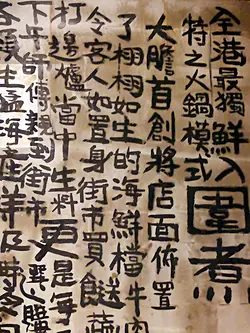 全港最獨鮮入圍煮!!!
特之火鍋模式
大膽首創將店面佈置
了栩栩如生的海鮮檔牛肉
令客人如置身街市買餸蔬
打邊爐當中生料更是每天
下午師傅親到街市選購
各類生猛海産羊及